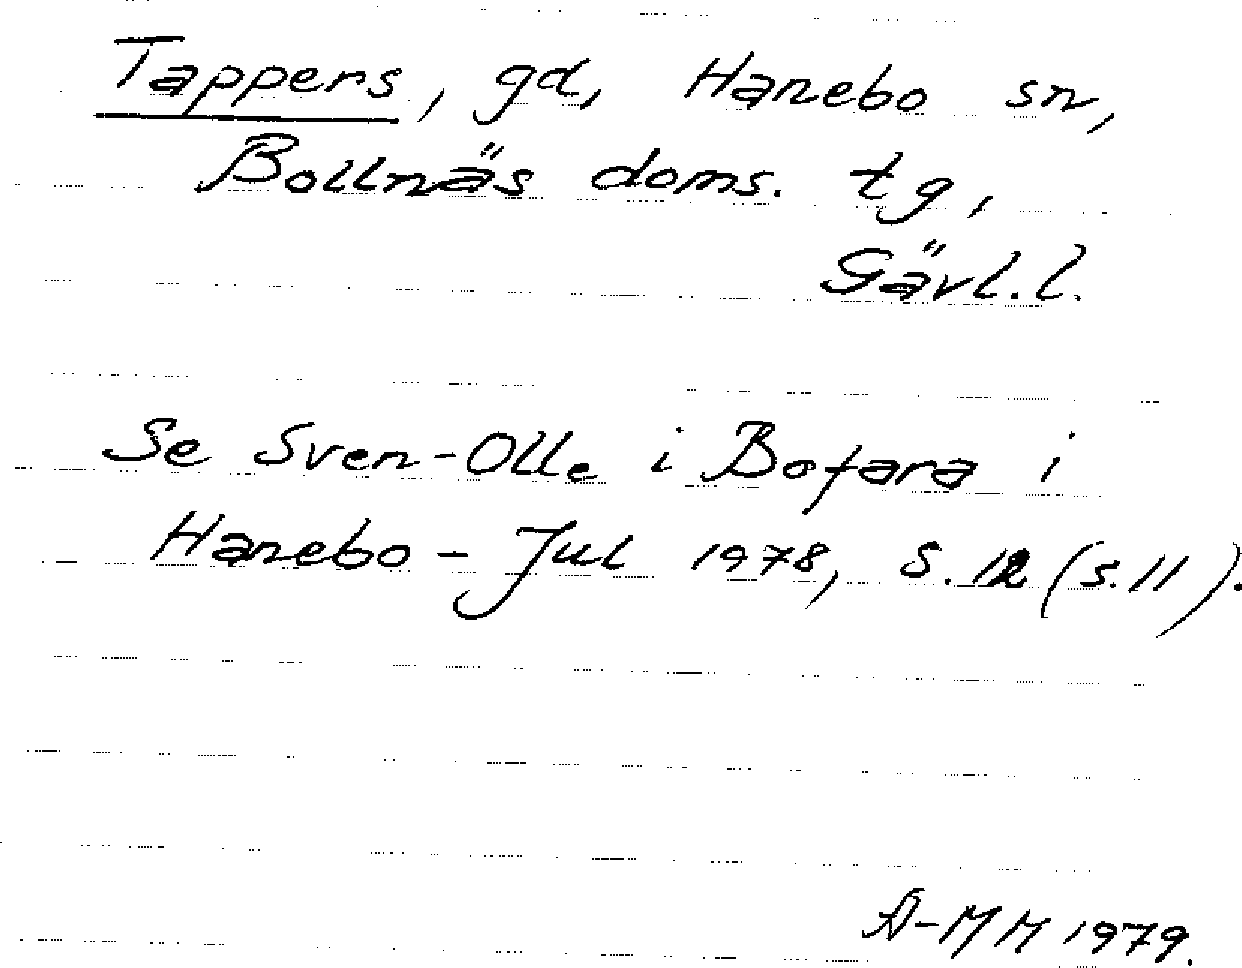 Tappers, gd, Hanebo sn,
Bollnäs doms. tg,
Gävl.l.
Se Sven-Olle i Bofara i
Hanebo - Jul 1978, s.12 (s.11).
A-MM 1979.